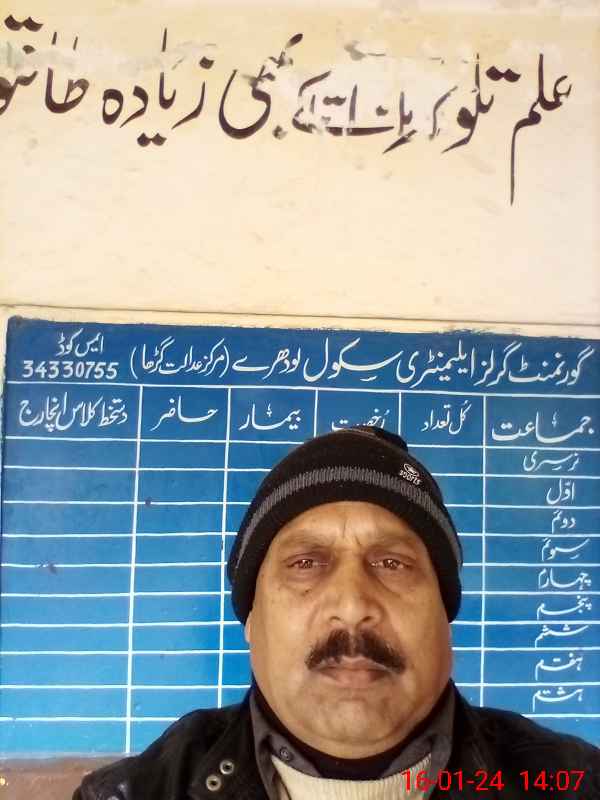 علم تلوار سے بھی زیادہ طاقتو
گورنمنٹ گرلز ایلیمنٹری سکول لودھرے (مرکز عدالت گڑھا)
ایس کوڈ
34330755
جماعت کُل تعداد رُخصت بیمار حاضر دستخط کلاس انچارج
نرسری
اوّل
دوئم
سوئم
چہارم
پنجم
ششم
ہفتم
ہشتم
SPORTS
16-01-24 14:07